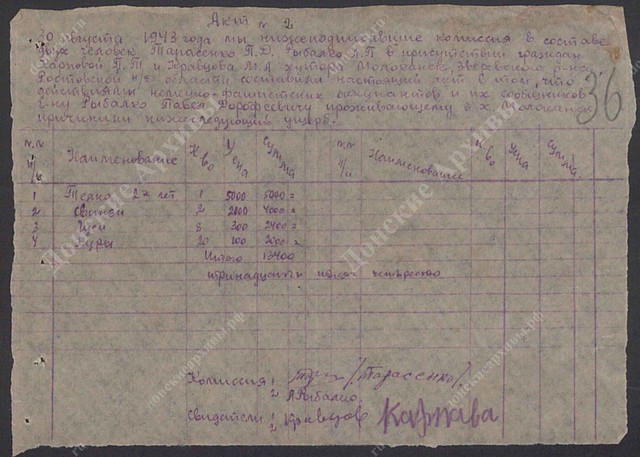 Акт № 2
30 августа 1943 года мы нижеподписавшиеся комиссия в составе
двух человек Тарасенко П.Д. Рыбалко Л.П в присутствии граждан
Карповой П.Т и Кравцова М.Л хутора Молоканск Зверевского
Ростовской области составили настоящий акт в том, что
действиями немецко-фашистских оккупантов и их сообщников
г-ну Рыбалко Павел Дорофеевичу проживающему в х. Молоканск
причинили нижеследующий ущерб.
36
№№ п/п Наименование К-во Цена Сумма №№ п/п Наименование К-во Цена Сумма
1 Телка 2х лет 1 5000 5000=
2 Свиньи 2 2000 4000=
3 Гуси 8 300 2400=
4 Куры 20 100 2000=
Итого 13400
тринадцать тысяч четыреста
Комиссия: 1 /Тарасенко/
2 ЛРыбалко
Свидетели: 1
2 Кравцов Карпава
Донские Архивы
донскиеархивы.рф